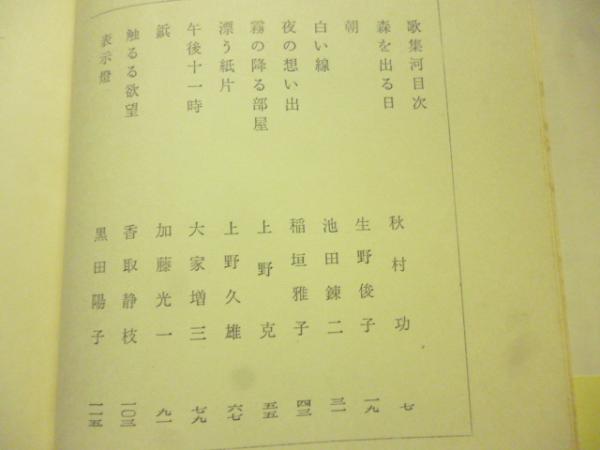 歌集河目次
森を出る日 秋村功 七
朝 生野俊子 一九
白い線 池田錬二 三一
夜の想い出 稲垣雅子 四三
霧の降る部屋 上野克 五五
漂う紙片 上野久雄 六七
午後十一時 大家増三 七九
鋲 加藤光一 九一
触るる欲望 香取静枝 一〇三
表示燈 黒田陽子 一一五